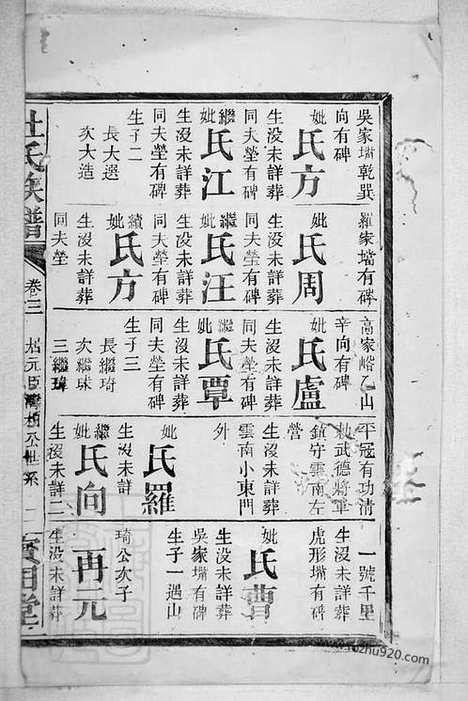 吳家墈乾巽
向有碑
妣氏方
生沒未詳葬
同夫塋有碑
繼妣氏江
生沒未詳葬
同夫塋有碑
生子二
長大選
次大造
羅家墻有碑
妣氏周
生沒未詳葬
同夫塋有碑
繼妣氏汪
生沒未詳葬
同夫塋有碑
續妣氏方
生沒未詳葬
同夫塋
高家乙山
辛向有碑
妣氏盧
生沒未詳葬
同夫塋有碑
繼妣氏覃
生沒未詳葬
同夫塋有碑
生子三
長繼琦
次繼球
三繼瑋
平冠有功清
勅武德將軍
鎮守雲南左
營
生沒未詳葬
雲南小東門
外
妣氏羅
生沒未詳
子
繼妣氏向
生沒未詳二
一號千里
生沒未詳葬
虎形墈有碑
妣氏曹
生沒未詳葬
吳家墈有碑
生子一遇山
再元
琦公次子
生沒未詳葬
杜氏族譜
卷三
元臣公世系
堂